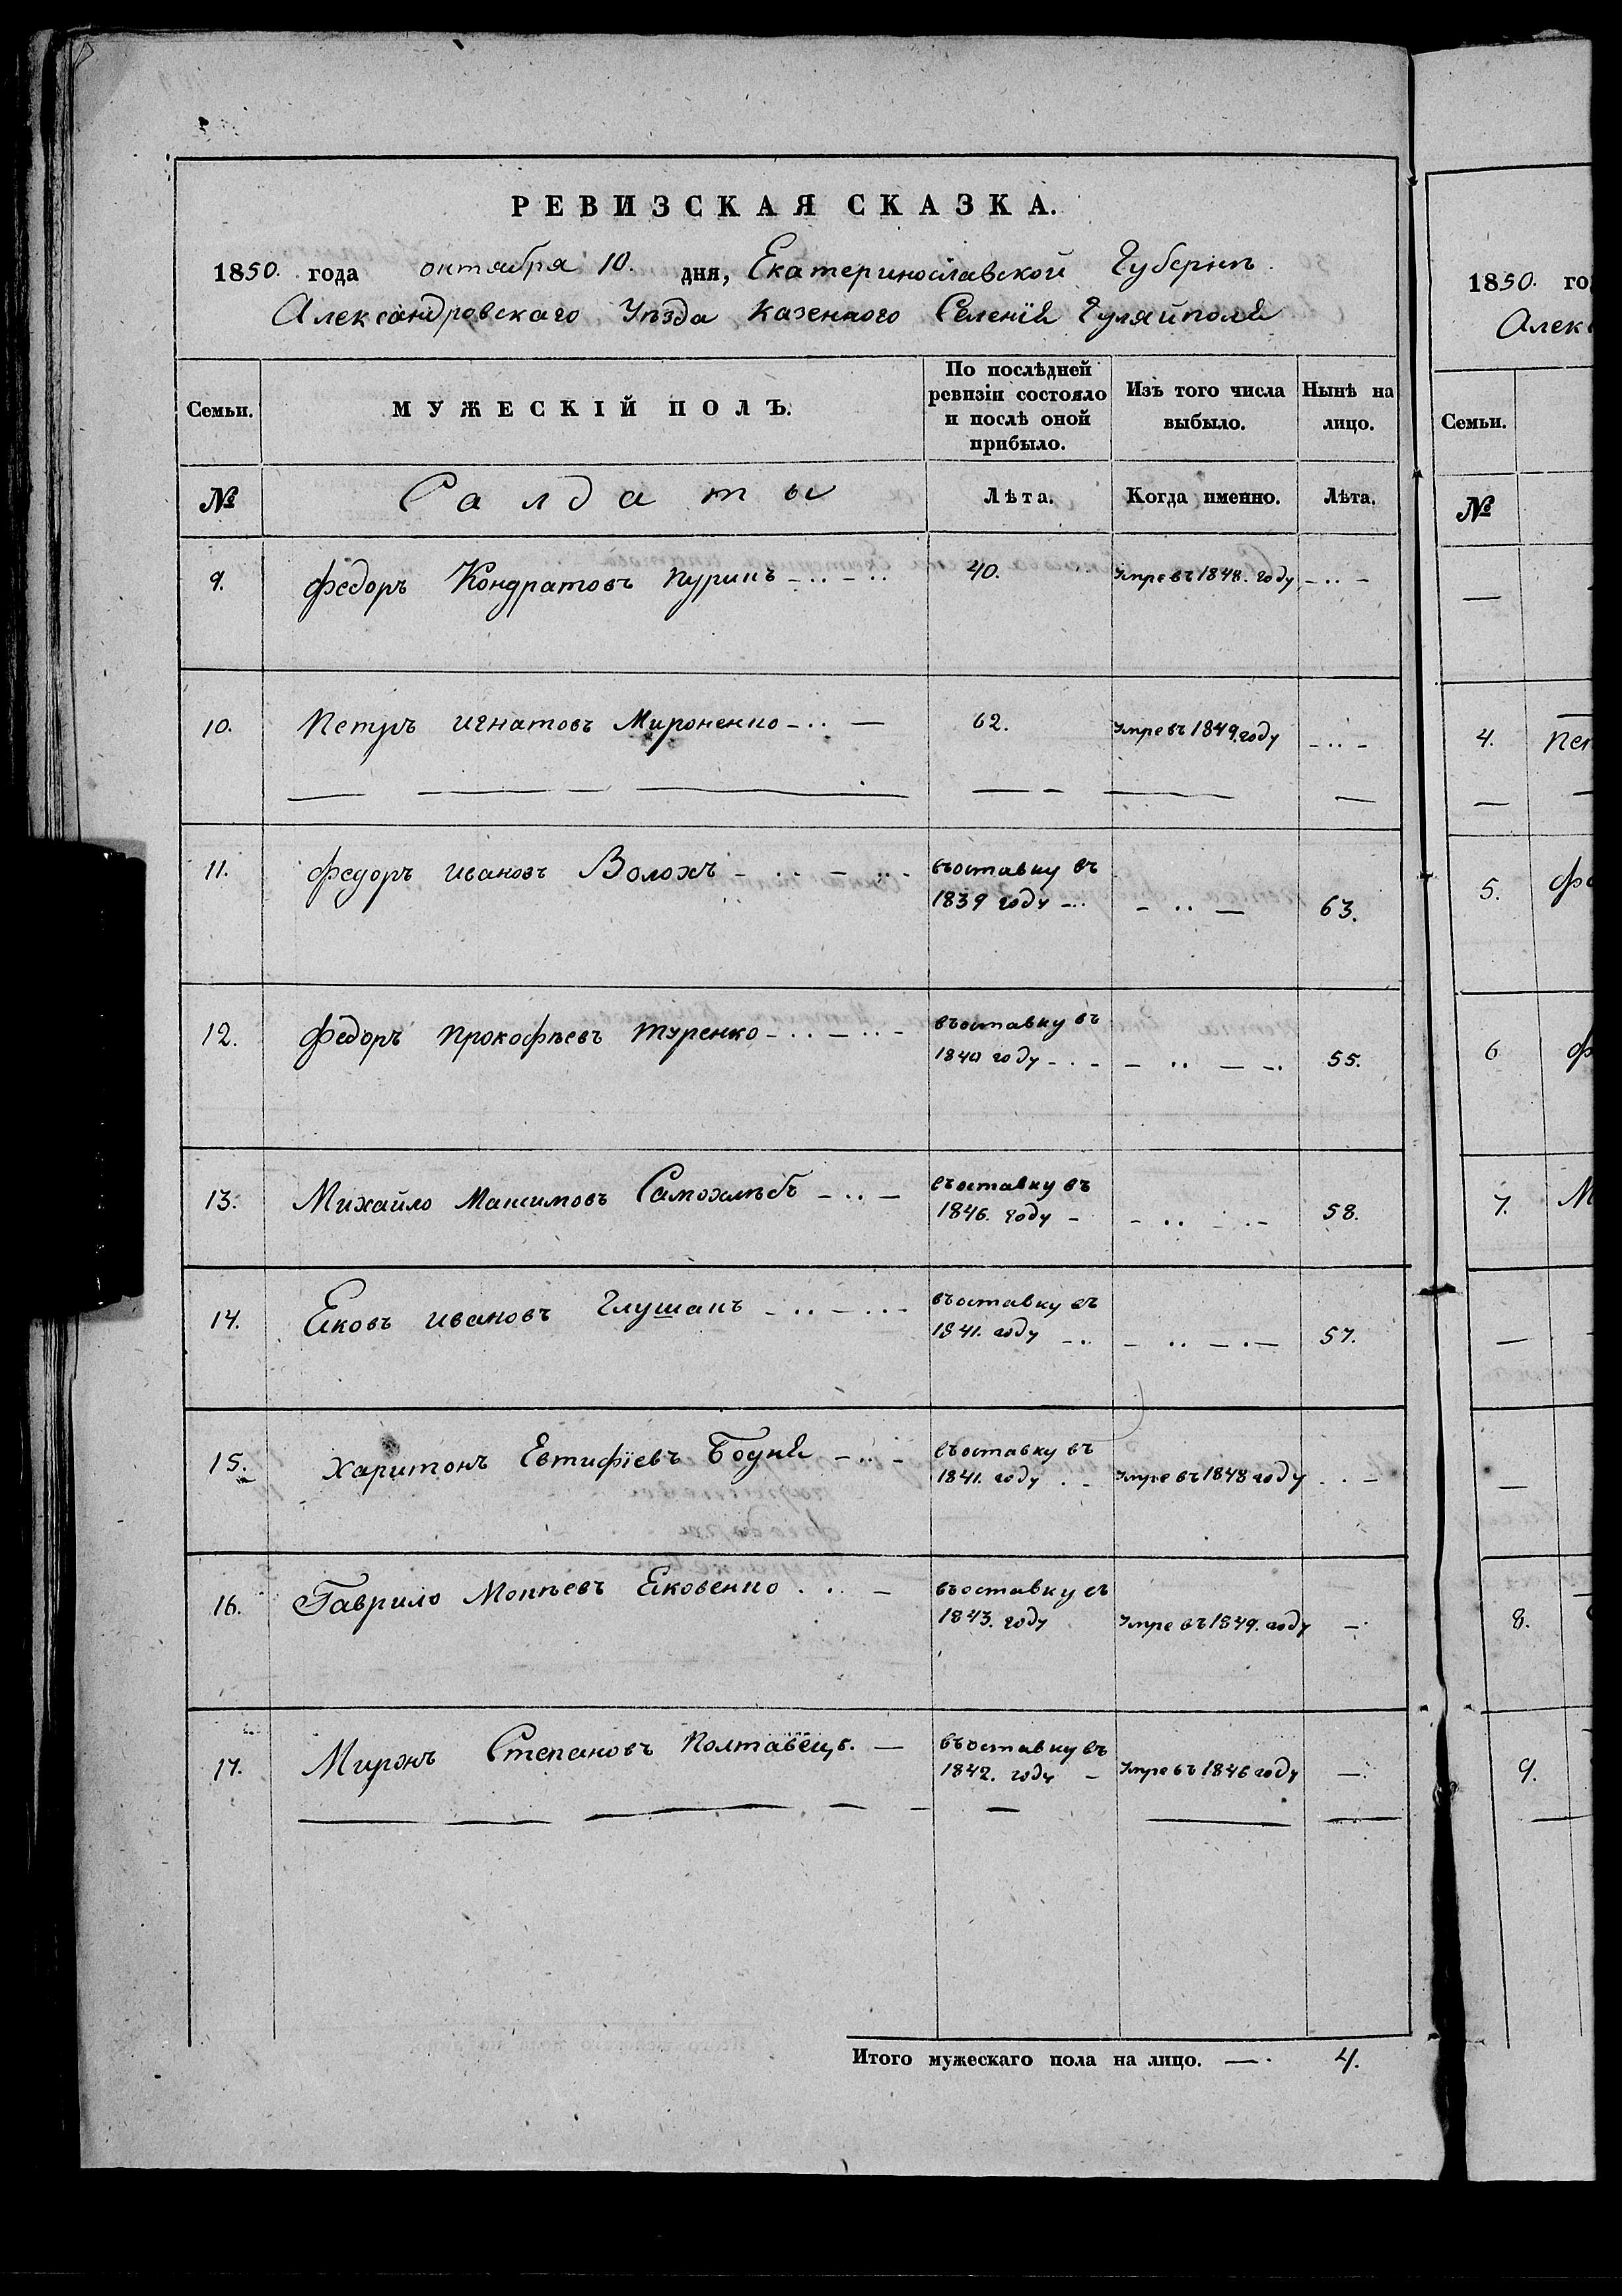 РЕВИЗСКАЯ СКАЗКА.
1850. года октября 10. дня, Екатеринославской Губерніи
Александровскаго Уѣзда казенного Селенія Гуляйполя
Семьи. МУЖЕСКІЙ ПОЛЪ. По послѣдней ревизіи состояло и послѣ оной прибыло. Изъ того числа выбыло. Нынѣ на лицо.
№ Салдаты Лѣта. Когда именно. Лѣта.
9. Федоръ Кондратовъ Куринъ 40. Умре въ 1848. году
10. Петръ Игнатовъ Мироненко 62. Умре въ 1849. году
11. Федоръ Ивановъ Волохъ въотставку въ
1839 году 63.
12. Федоръ Прокофьевъ Туренко въотставку въ
1840 году 55.
13. Михайло Максимовъ Самохлѣбъ въотставку въ
1846. году 58.
14. Яковъ Ивановъ Глушакъ въотставку въ
1841. году 57.
15. Харитонъ Евтифіевъ Боуня въотставку въ
1841. году Умре въ 1848 году
16. Гаврило Мокѣевъ Яковенко въотставку въ
1843. году Умре въ 1849. году
17. Миронъ Степановъ Полтавецъ. въотставку въ
1842. году Умре въ 1846 году
Итого мужескаго пола на лицо. 4.
1850. го
Алек
Семьи.
№
4. Пет
5. Фе
6 Ф
7. М
8.
9.